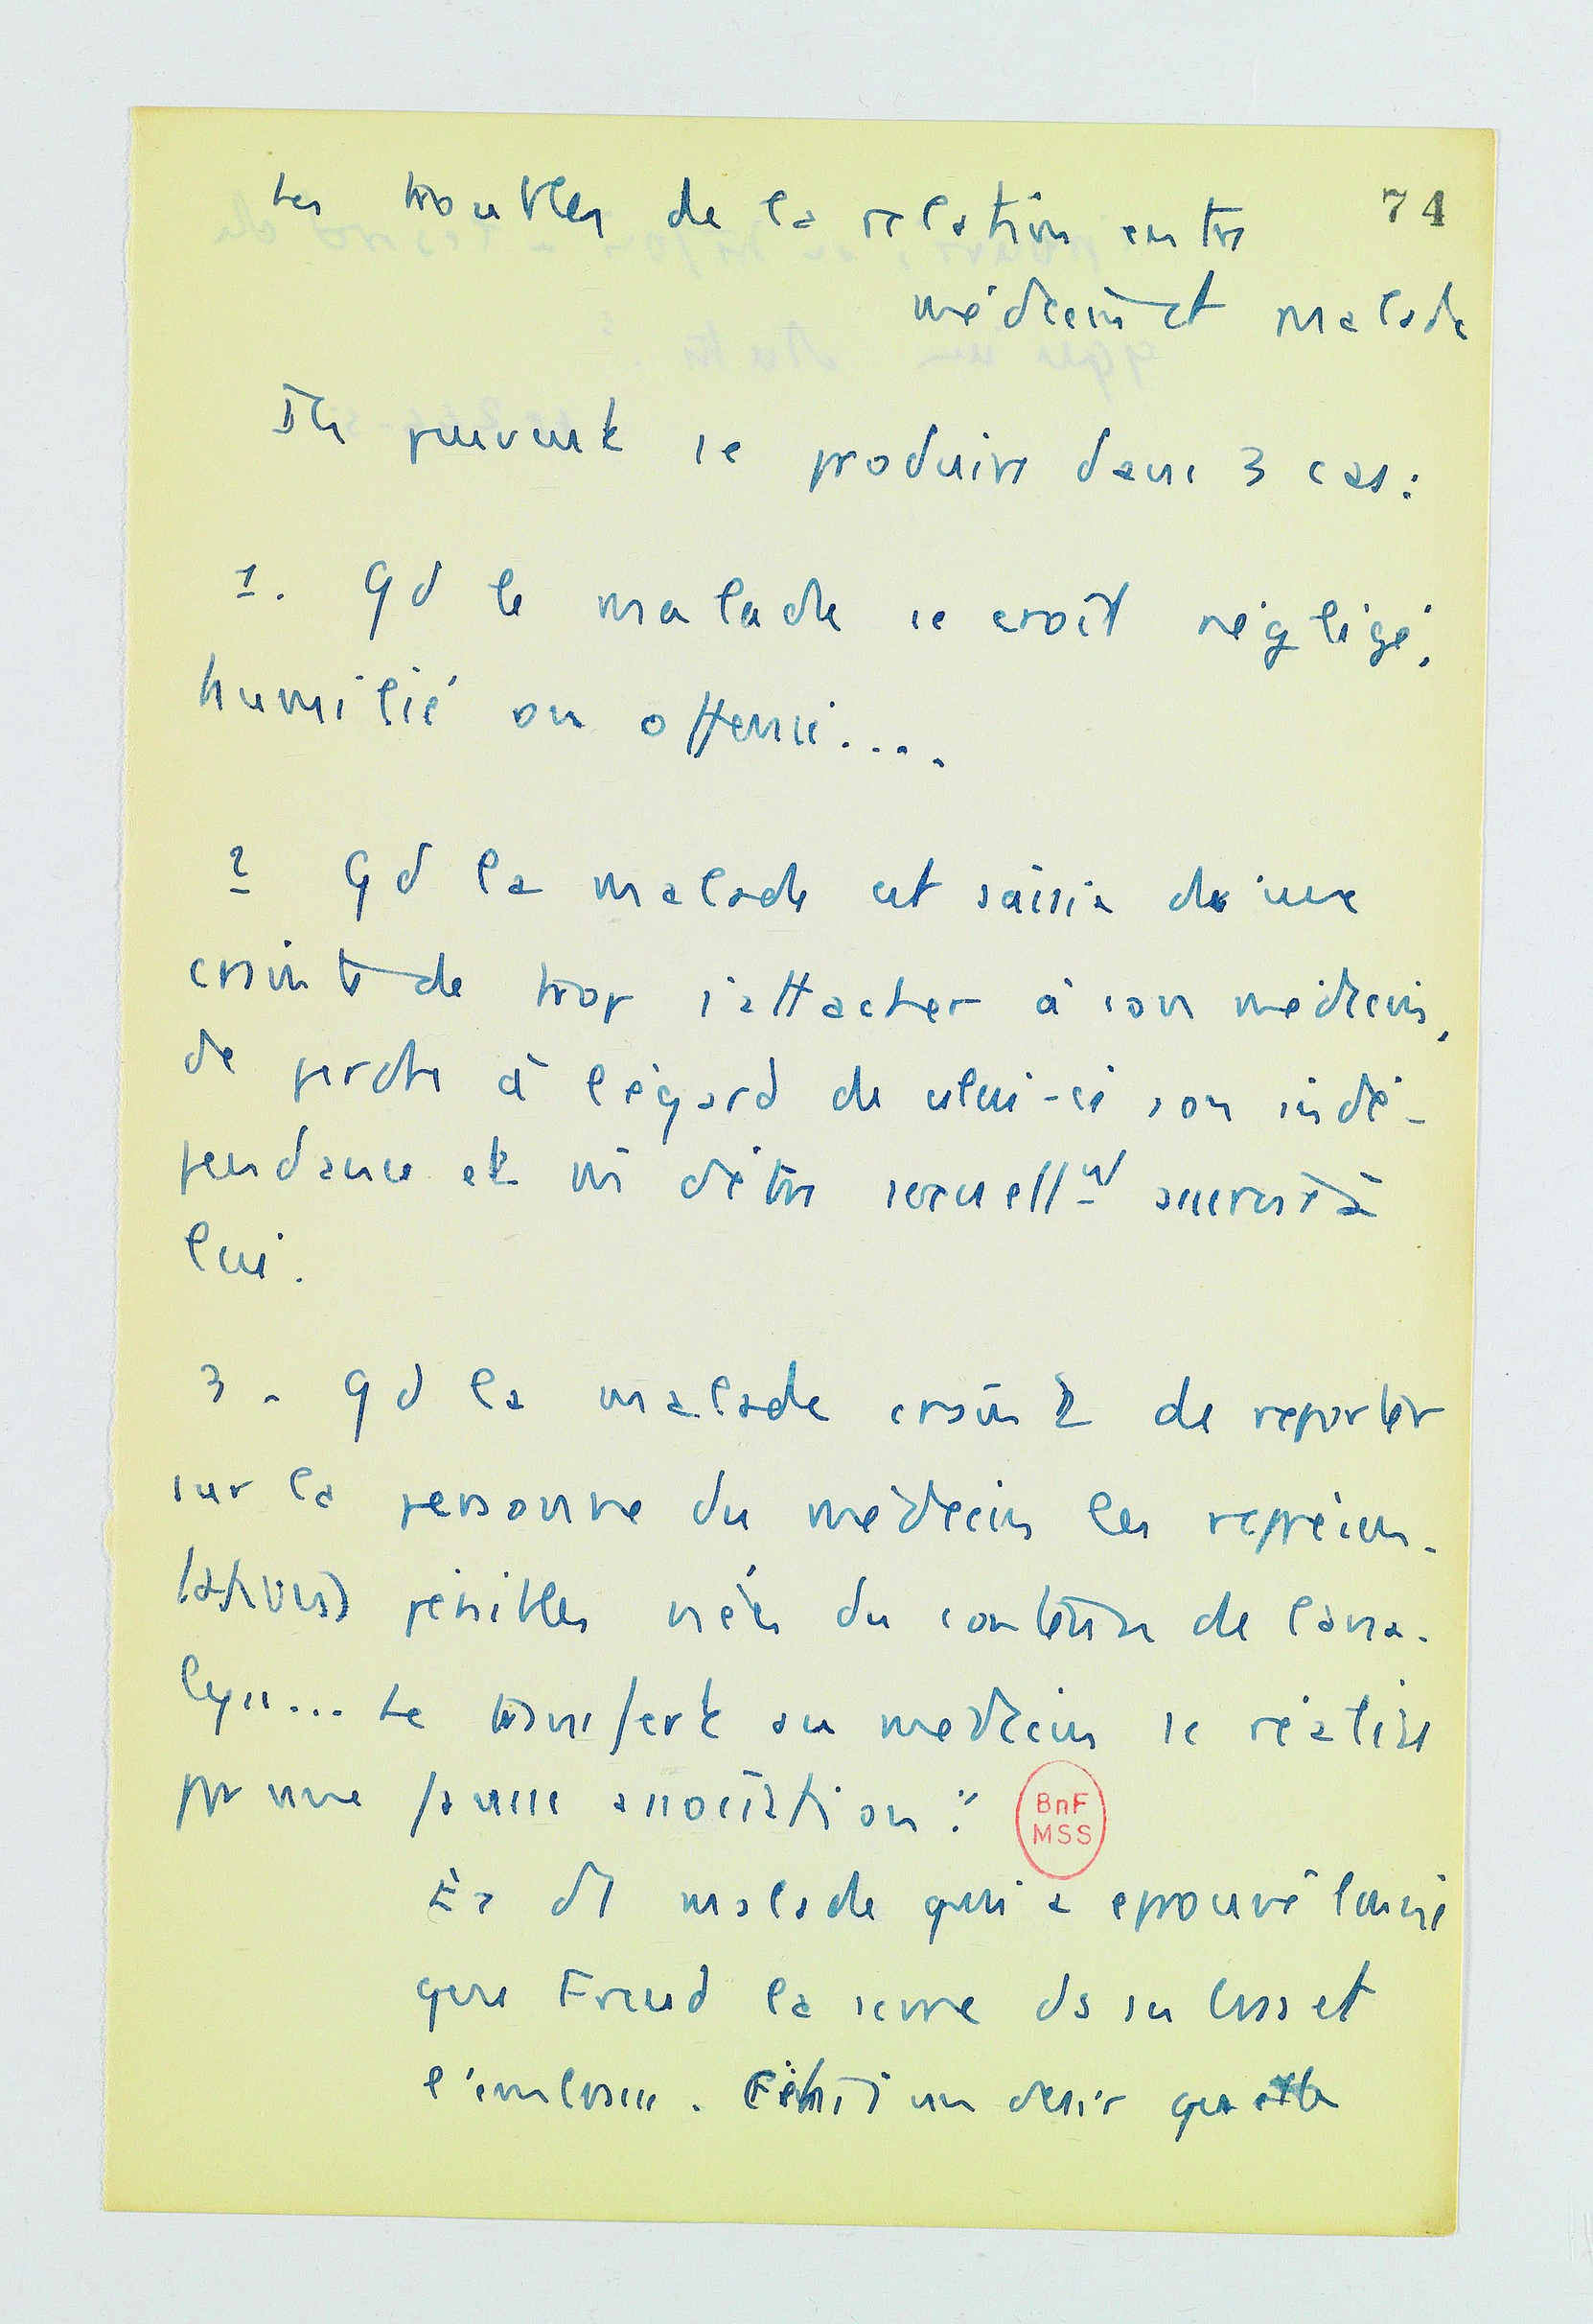 Les troubles de la relation entre
74
médecin et malade
Ils peuvent se produire dans 3 cas :
1. Qd le malade se croit négligé,
humilié ou offensé....
2 Qd la malade est saisie de une
crainte de trop s'attacher à son médecin,
de perdre à l'égard de celui-ci son indé-
pendance et m̄ d'être sexuellnt asservie à
lui.
3. Qd la malade craint de reporter
sur la personne du médecin les représen-
tations pénibles nées du contenu de l'ana-
lyse... Le transfert au médecin se réalise
par une fausse association."
Ex dt malade qui a eprouvé l'envie
que Freud la serre ds ses bras et
l'embrasse. C'était un desir qu'elle
BnF
MSS